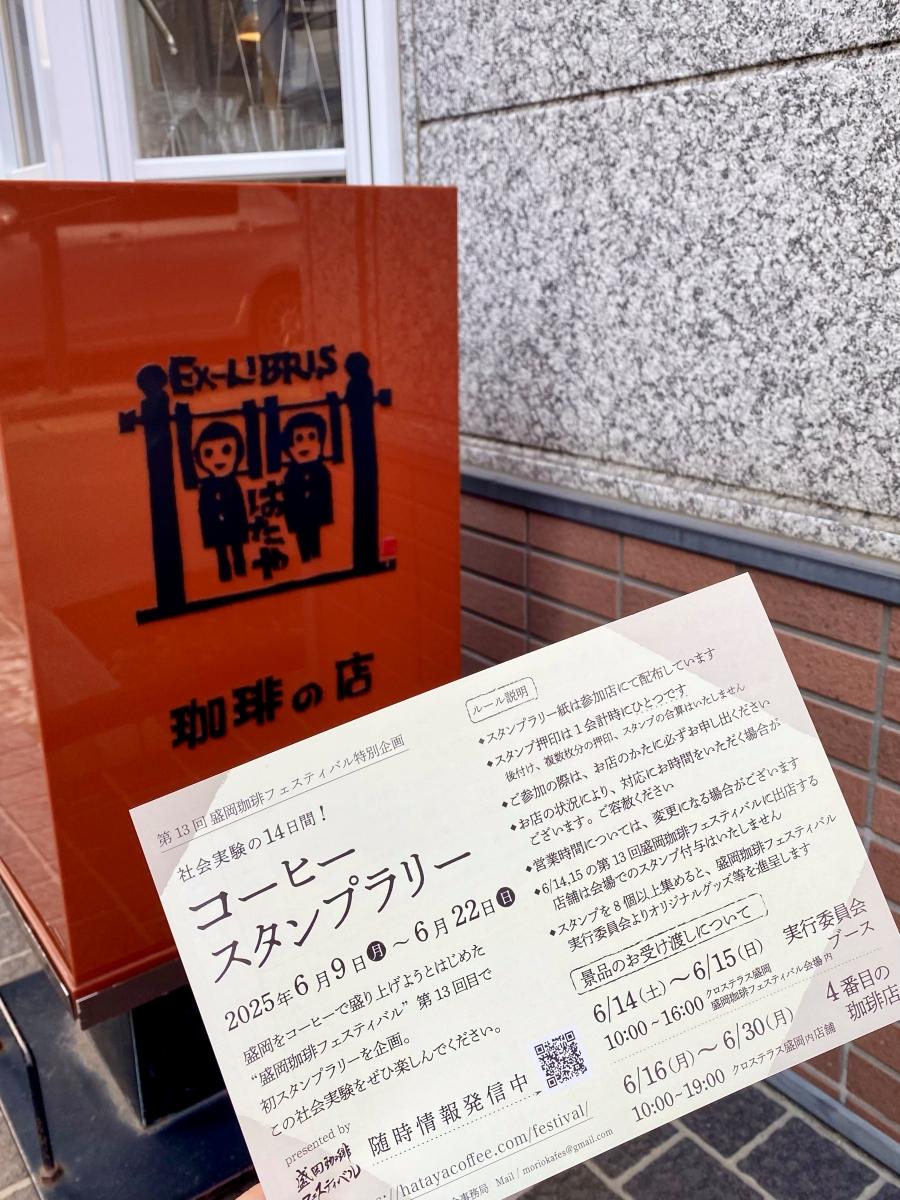 EX-LIBRIS
はたや
珈琲の店
第13回 盛岡珈琲フェスティバル特別企画
社会実験の14日間！
コーヒー
スタンプラリー
2025年6月9日月～6月22日日
盛岡をコーヒーで盛り上げようとはじめた
“盛岡珈琲フェスティバル”第13回目で
初スタンプラリーを企画。
この社会実験をぜひ楽しんでください。
presented by
盛岡珈琲
フェスティバル
随時情報発信中
://hatayacoffee.com/festival/
会事務局 Mail / moriokafes@gmail.com
ルール説明
◆スタンプラリー紙は参加店にて配布しています
◆スタンプ押印は1会計時にひとつです
後付け、複数枚分の押印、スタンプの合算はいたしません
◆ご参加の際は、お店のかたに必ずお申し出ください
◆お店の状況により、対応にお時間をいただく場合が
ございます。ご容赦ください
◆営業時間については、変更になる場合がございます
◆6/14,15の第13回盛岡珈琲フェスティバルに出店する
店舗は会場でのスタンプ付与はいたしません
◆スタンプを8個以上集めると、盛岡珈琲フェスティバル
実行委員会よりオリジナルグッズ等を進呈します
景品のお受け渡しについて
6/14(土)～6/15(日)
10:00~16:00 クロステラス盛岡
盛岡珈琲フェスティバル会場内
実行委員会
ブース
6/16(月)～6/30(月)
10:00~19:00 クロステラス盛岡内店舗
4番目の
珈琲店